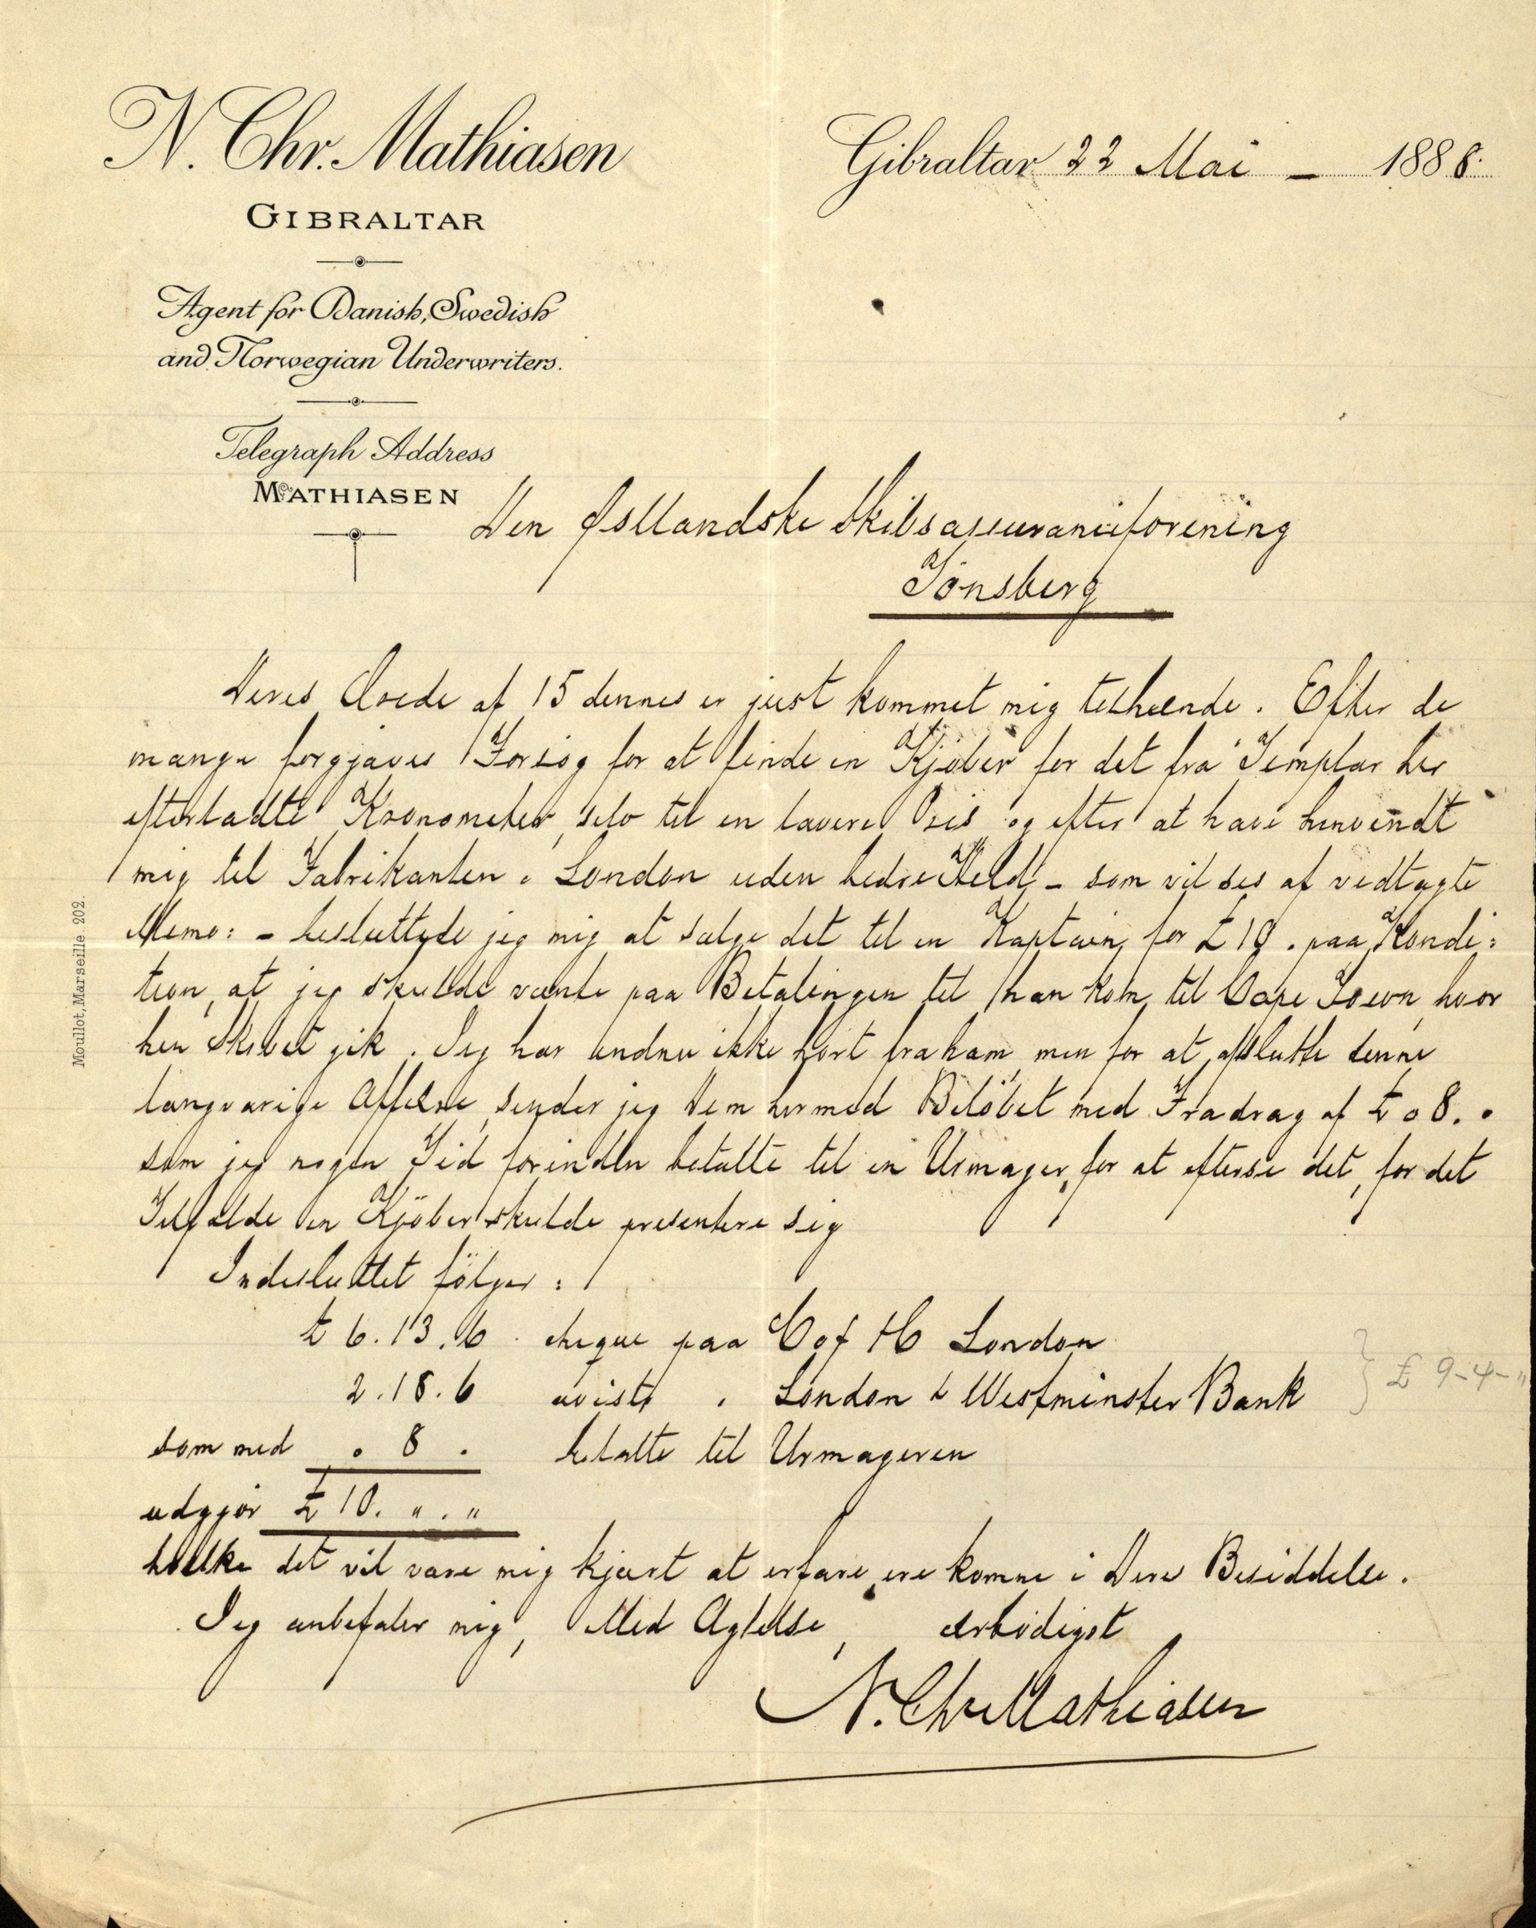 N. Chr. Mathiasen
GIBRALTAR
Agent for Danish, Swedish
and Norwegian Underwriters.
Telegraph Address
MATHIASEN
Gibraltar 22 Mai - 1888.
Den Østlandske Skibsassuranceforening
Tönsberg
Deres Ærede af 15 dennes er just kommet mig tilhænde. Efter de
mange forgjæves Forsög for at finde en Kjöber for det fra Templar her
efterladte Kronometer, selv til en lavere Pris og efter at have henvendt
mig til Fabrikanten i London uden bedre Held, - som vil ses af vedlagte
Memo: - besluttede jeg mig at sælge det til en Kaptain for £ 10. paa Kondi:
tion, at jeg skulde vente paa Betalingen til han kom til Cape Town, hvor
hen Skibet gik. Jeg har endnu ikke hört fra ham, men for at afslutte denne
langvarige Affære, sender jeg Dem hermed Belöbet med Fradrag af £ o 8. o
som jeg nogen Tid forinden betalte til en Urmager, for at efterse det, for det
Tilfælde en Kjöber skulde presentere sig
Indesluttet fölger:
£ 6.13.6 cheque paa C of H London
2.18.6 avista " London & Westminster Bank
} £ 9-4-"
som med . 8 . betalte til Urmageren
udgjør £ 10. " . "
hvilke det vil være mig kjært at erfare, ere komne i Deres Besiddelse.
Jeg anbefaler mig, Med Agtelse, ærbödigst
N. Chr Mathiasen
Moullot, Marseille 202.